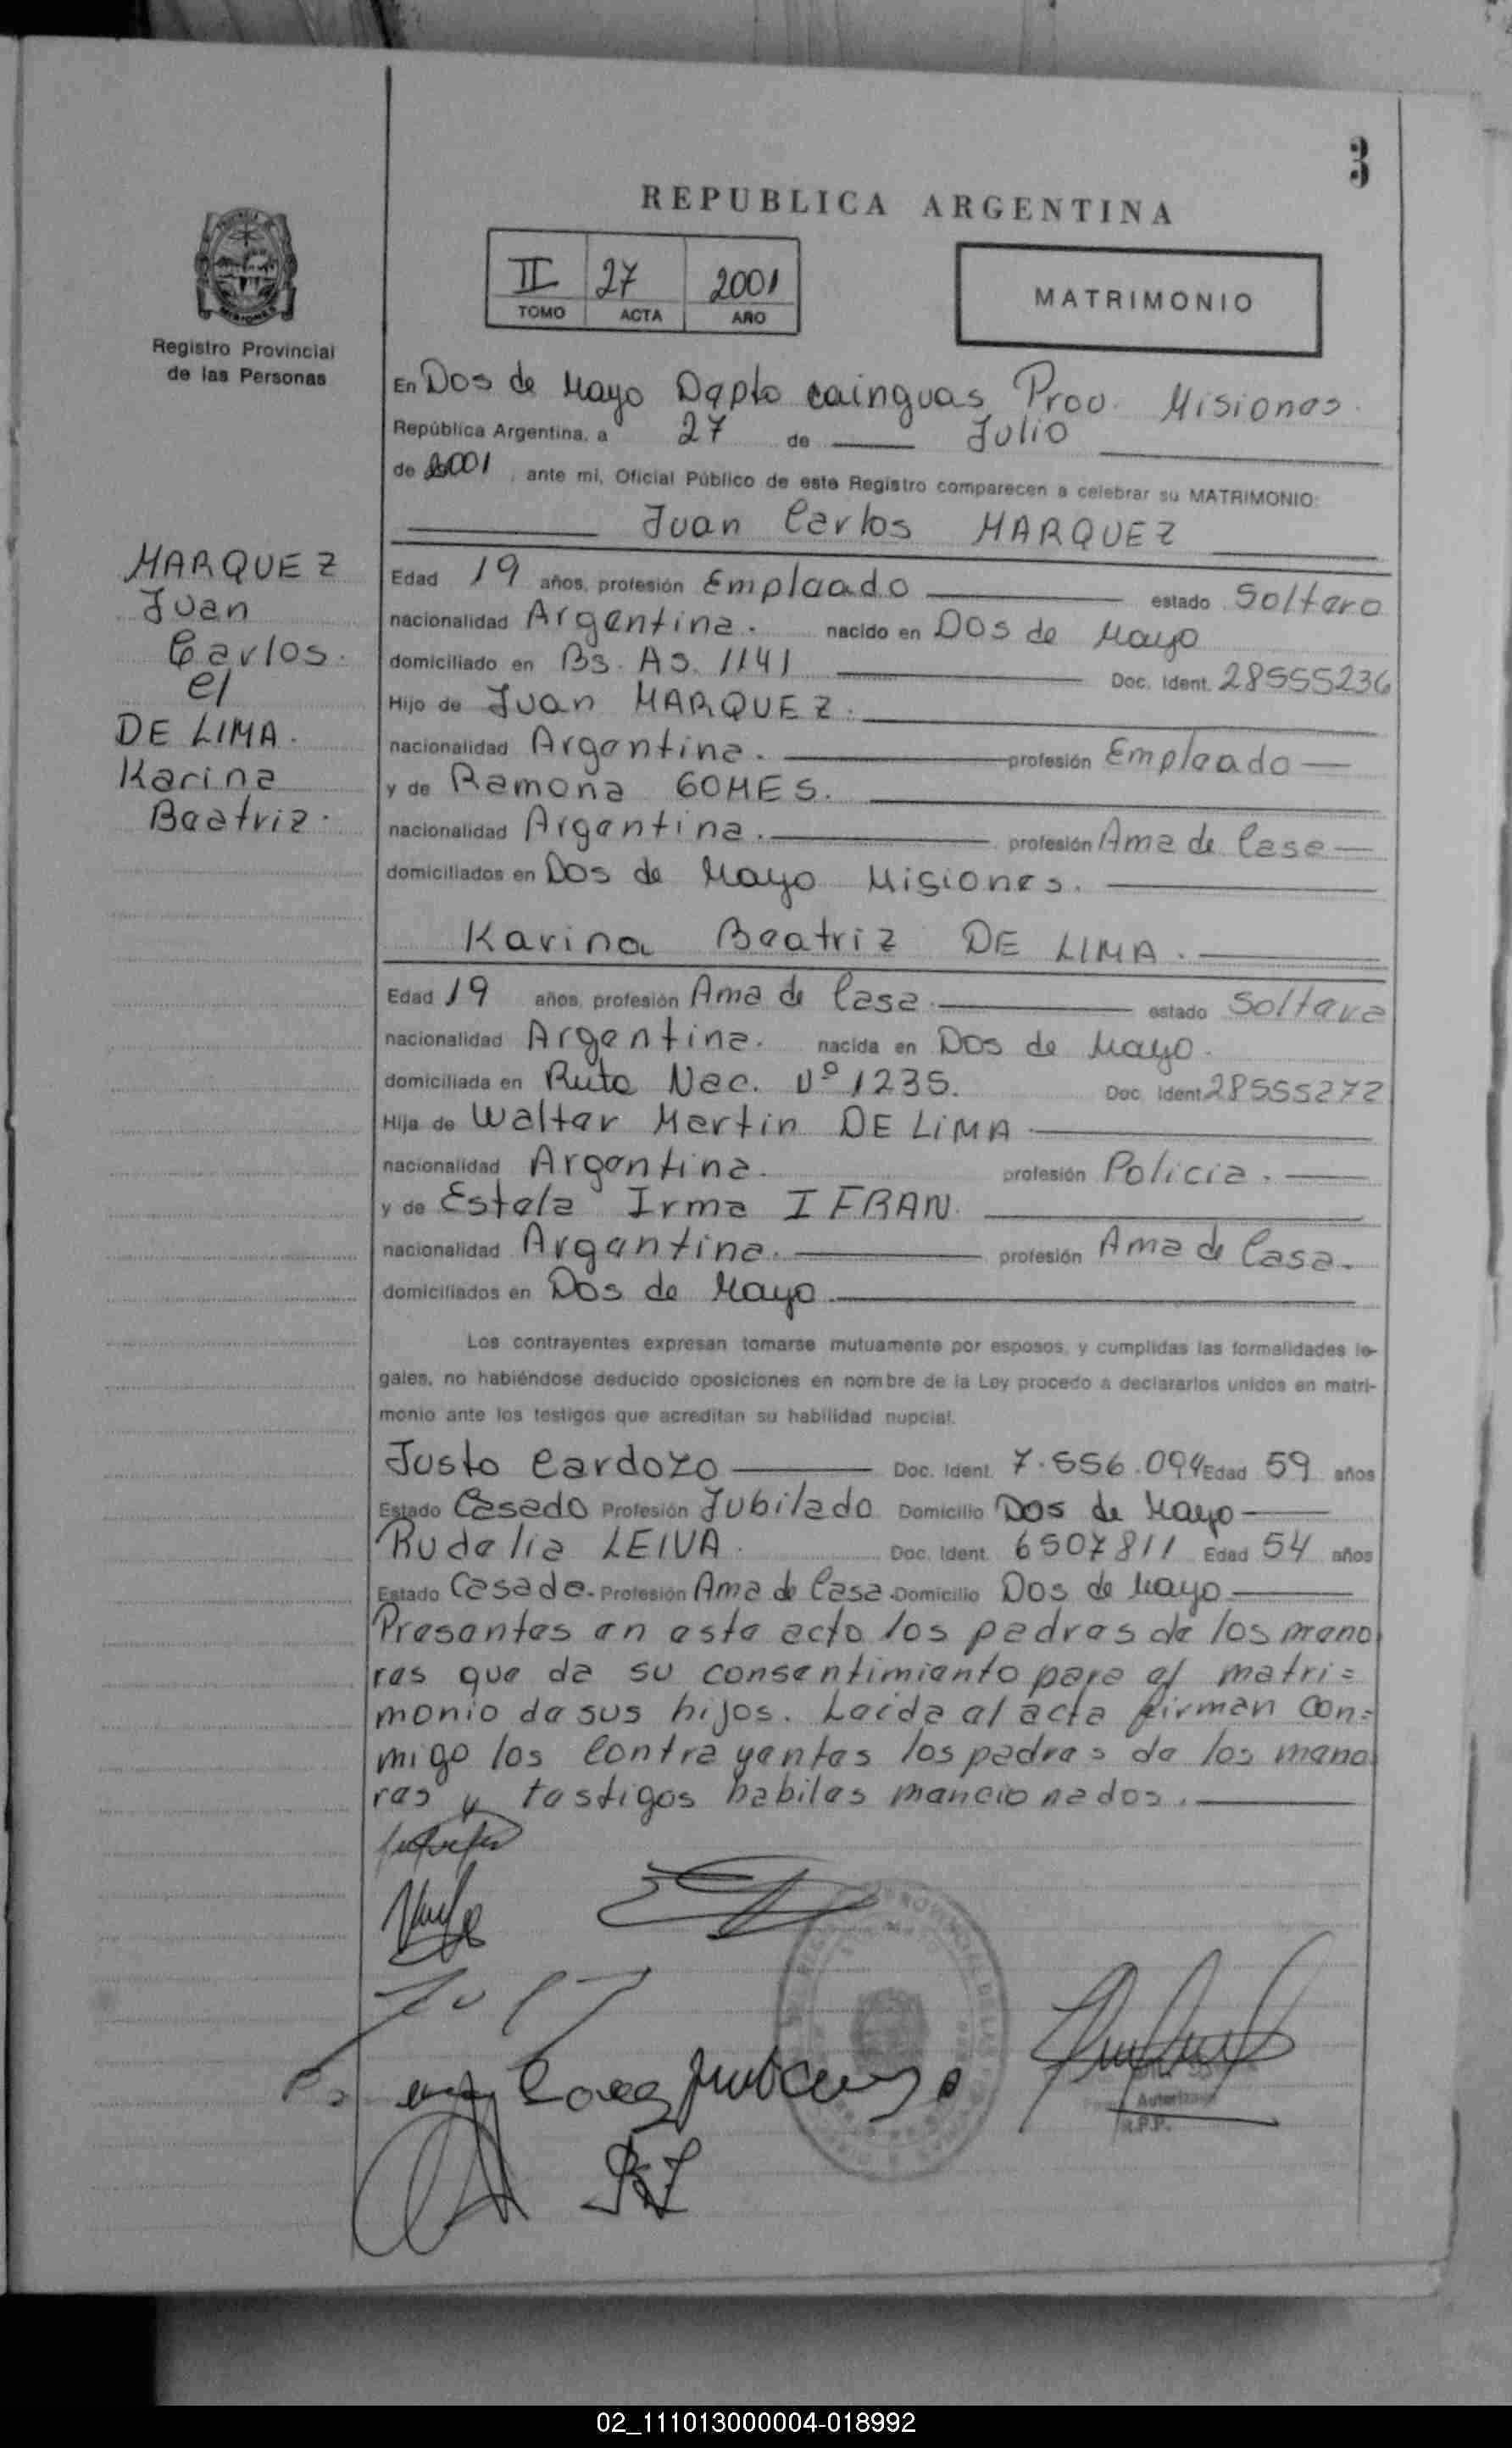 3
REPUBLICA ARGENTINA
II 27 2001
TOMO ACTA AÑO
MATRIMONIO
Registro Provincial
de las Personas
En Dos de Mayo Depto cainguas Prov. Misiones.
República Argentina, a 27 de Julio
de 2001, ante mi, Oficial Público de este Registro comparecen a celebrar su MATRIMONIO:
Juan Carlos MARQUEZ
MARQUEZ
Juan
Carlos.
el
DE LIMA.
Karina
Beatriz.
Edad 19 años, profesión Empleado estado Soltero
nacionalidad Argentina. nacido en Dos de Mayo
domiciliado en Bs. As. 1141 Doc. Ident. 28555236
Hijo de Juan MARQUEZ.
nacionalidad Argentina. profesión Empleado
y de Ramona GOMES.
nacionalidad Argentina. profesión Ama de Casa
domiciliados en Dos de Mayo Misiones.
Karina Beatriz DE LIMA.
Edad 19 años, profesión Ama de Casa. estado Soltera
nacionalidad Argentina. nacida en Dos de Mayo.
domiciliada en Ruta Nac. Nº 1235. Doc. Ident. 28555272
Hija de Walter Martin DE LIMA
nacionalidad Argentina. profesión Policia.
y de Estela Irma IFRAN.
nacionalidad Argentina. profesión Ama de Casa.
domiciliados en Dos de Mayo
Los contrayentes expresan tomarse mutuamente por esposos, y cumplidas las formalidades le-
gales, no habiéndose deducido oposiciones en nombre de la Ley procedo a declararlos unidos en matri-
monio ante los testigos que acreditan su habilidad nupcial.
Justo Cardozo Doc. Ident. 7.556.094 Edad 59 años
Estado Casado Profesión Jubilado Domicilio Dos de Mayo
Rudelia LEIVA. Doc. Ident. 6507811 Edad 54 años
Estado Casado. Profesión Ama de Casa. Domicilio Dos de Mayo
Presentes en este acto los padres de los meno
res que da su consentimiento para el matri=
monio de sus hijos. Leida al acta firman con=
migo los Contrayentes los padres de los meno
res y testigos habiles mencionados.
Autorizado
R.P.P.
02_111013000004-018992